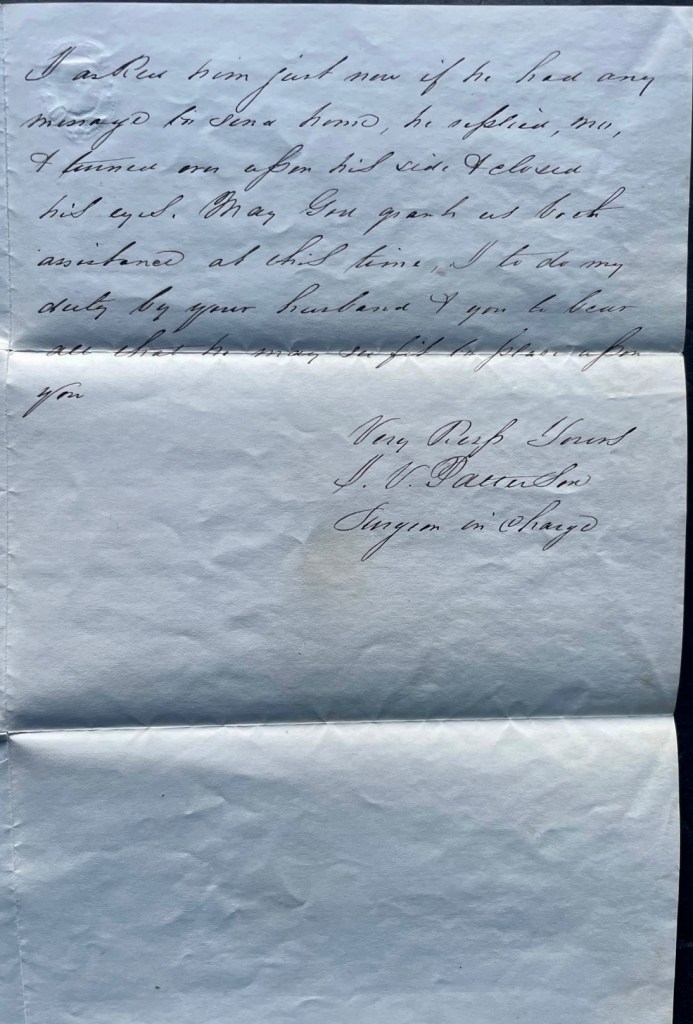 I asked him just now if he had any
message to send home, he replied, no,
& turned over upon his side & closed
his eyes. May God grant us both
assistance at this time, I to do my
duty by your husband & you to bear
all that he may see fit to place upon
you
Very Resp Yours
V. Patterson
Surgeon in Charge